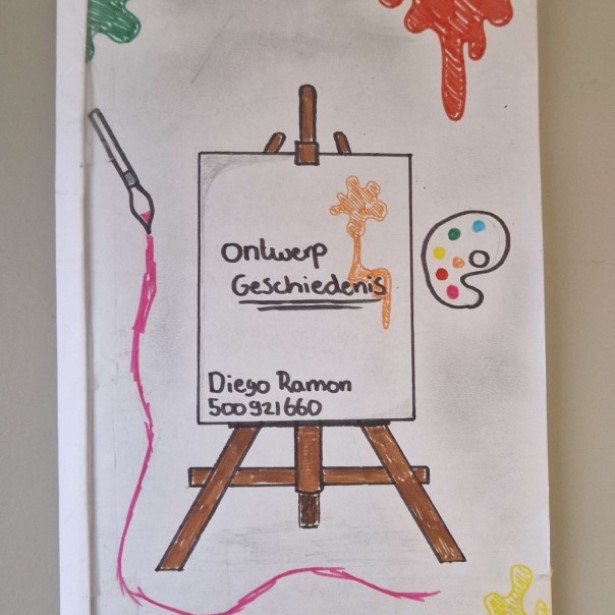 Ontwerp
Geschiedenis
Diego Ramon
500921660